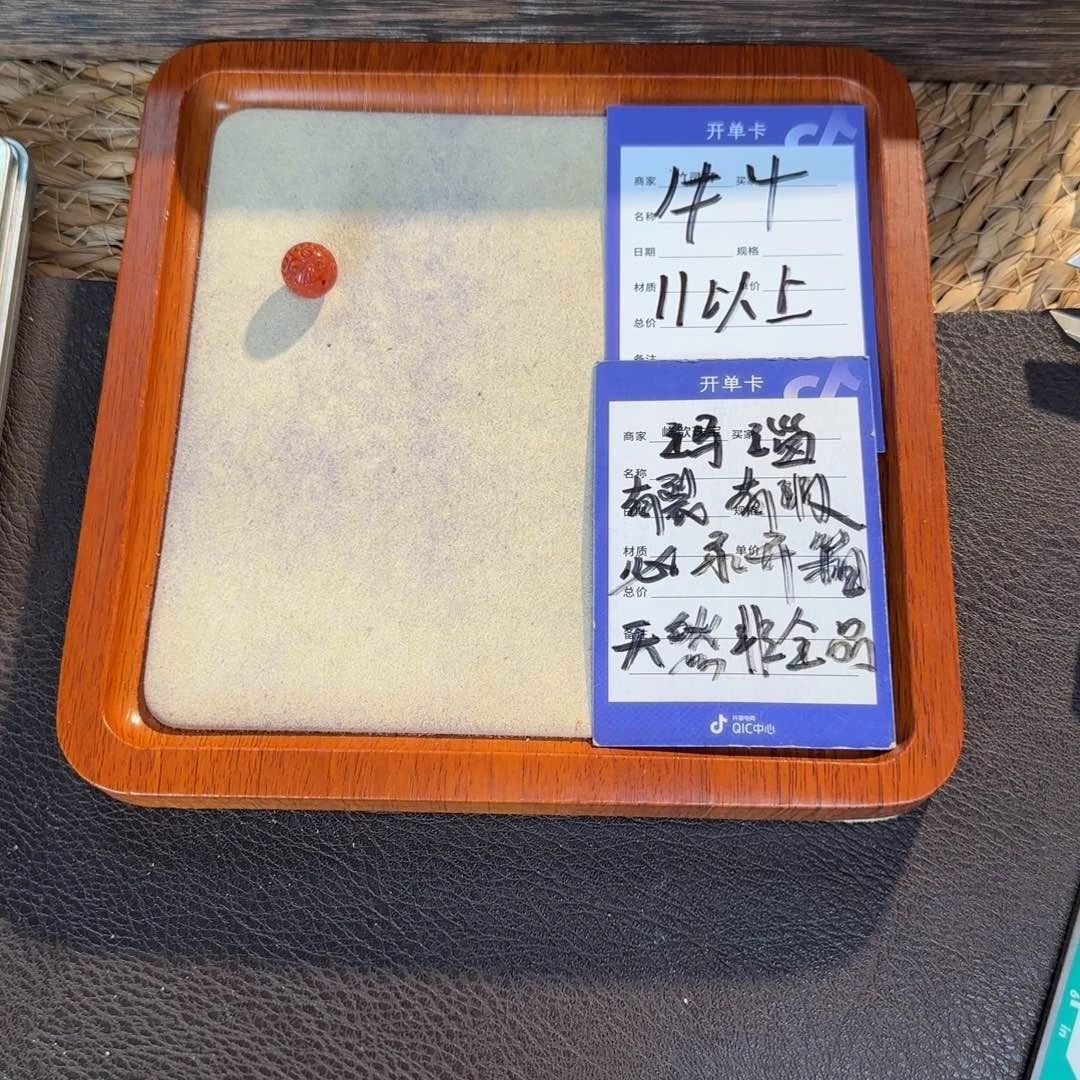 开单卡
商家 买家
牛斗
名称
日期 规格
材质 单价
11以上
总价
备注
开单卡
商家 买家
玛瑙
名称
有裂 有
规格
材质 单价
心 不开
总价
天然非全品
备注
抖音电商
QIC中心
in